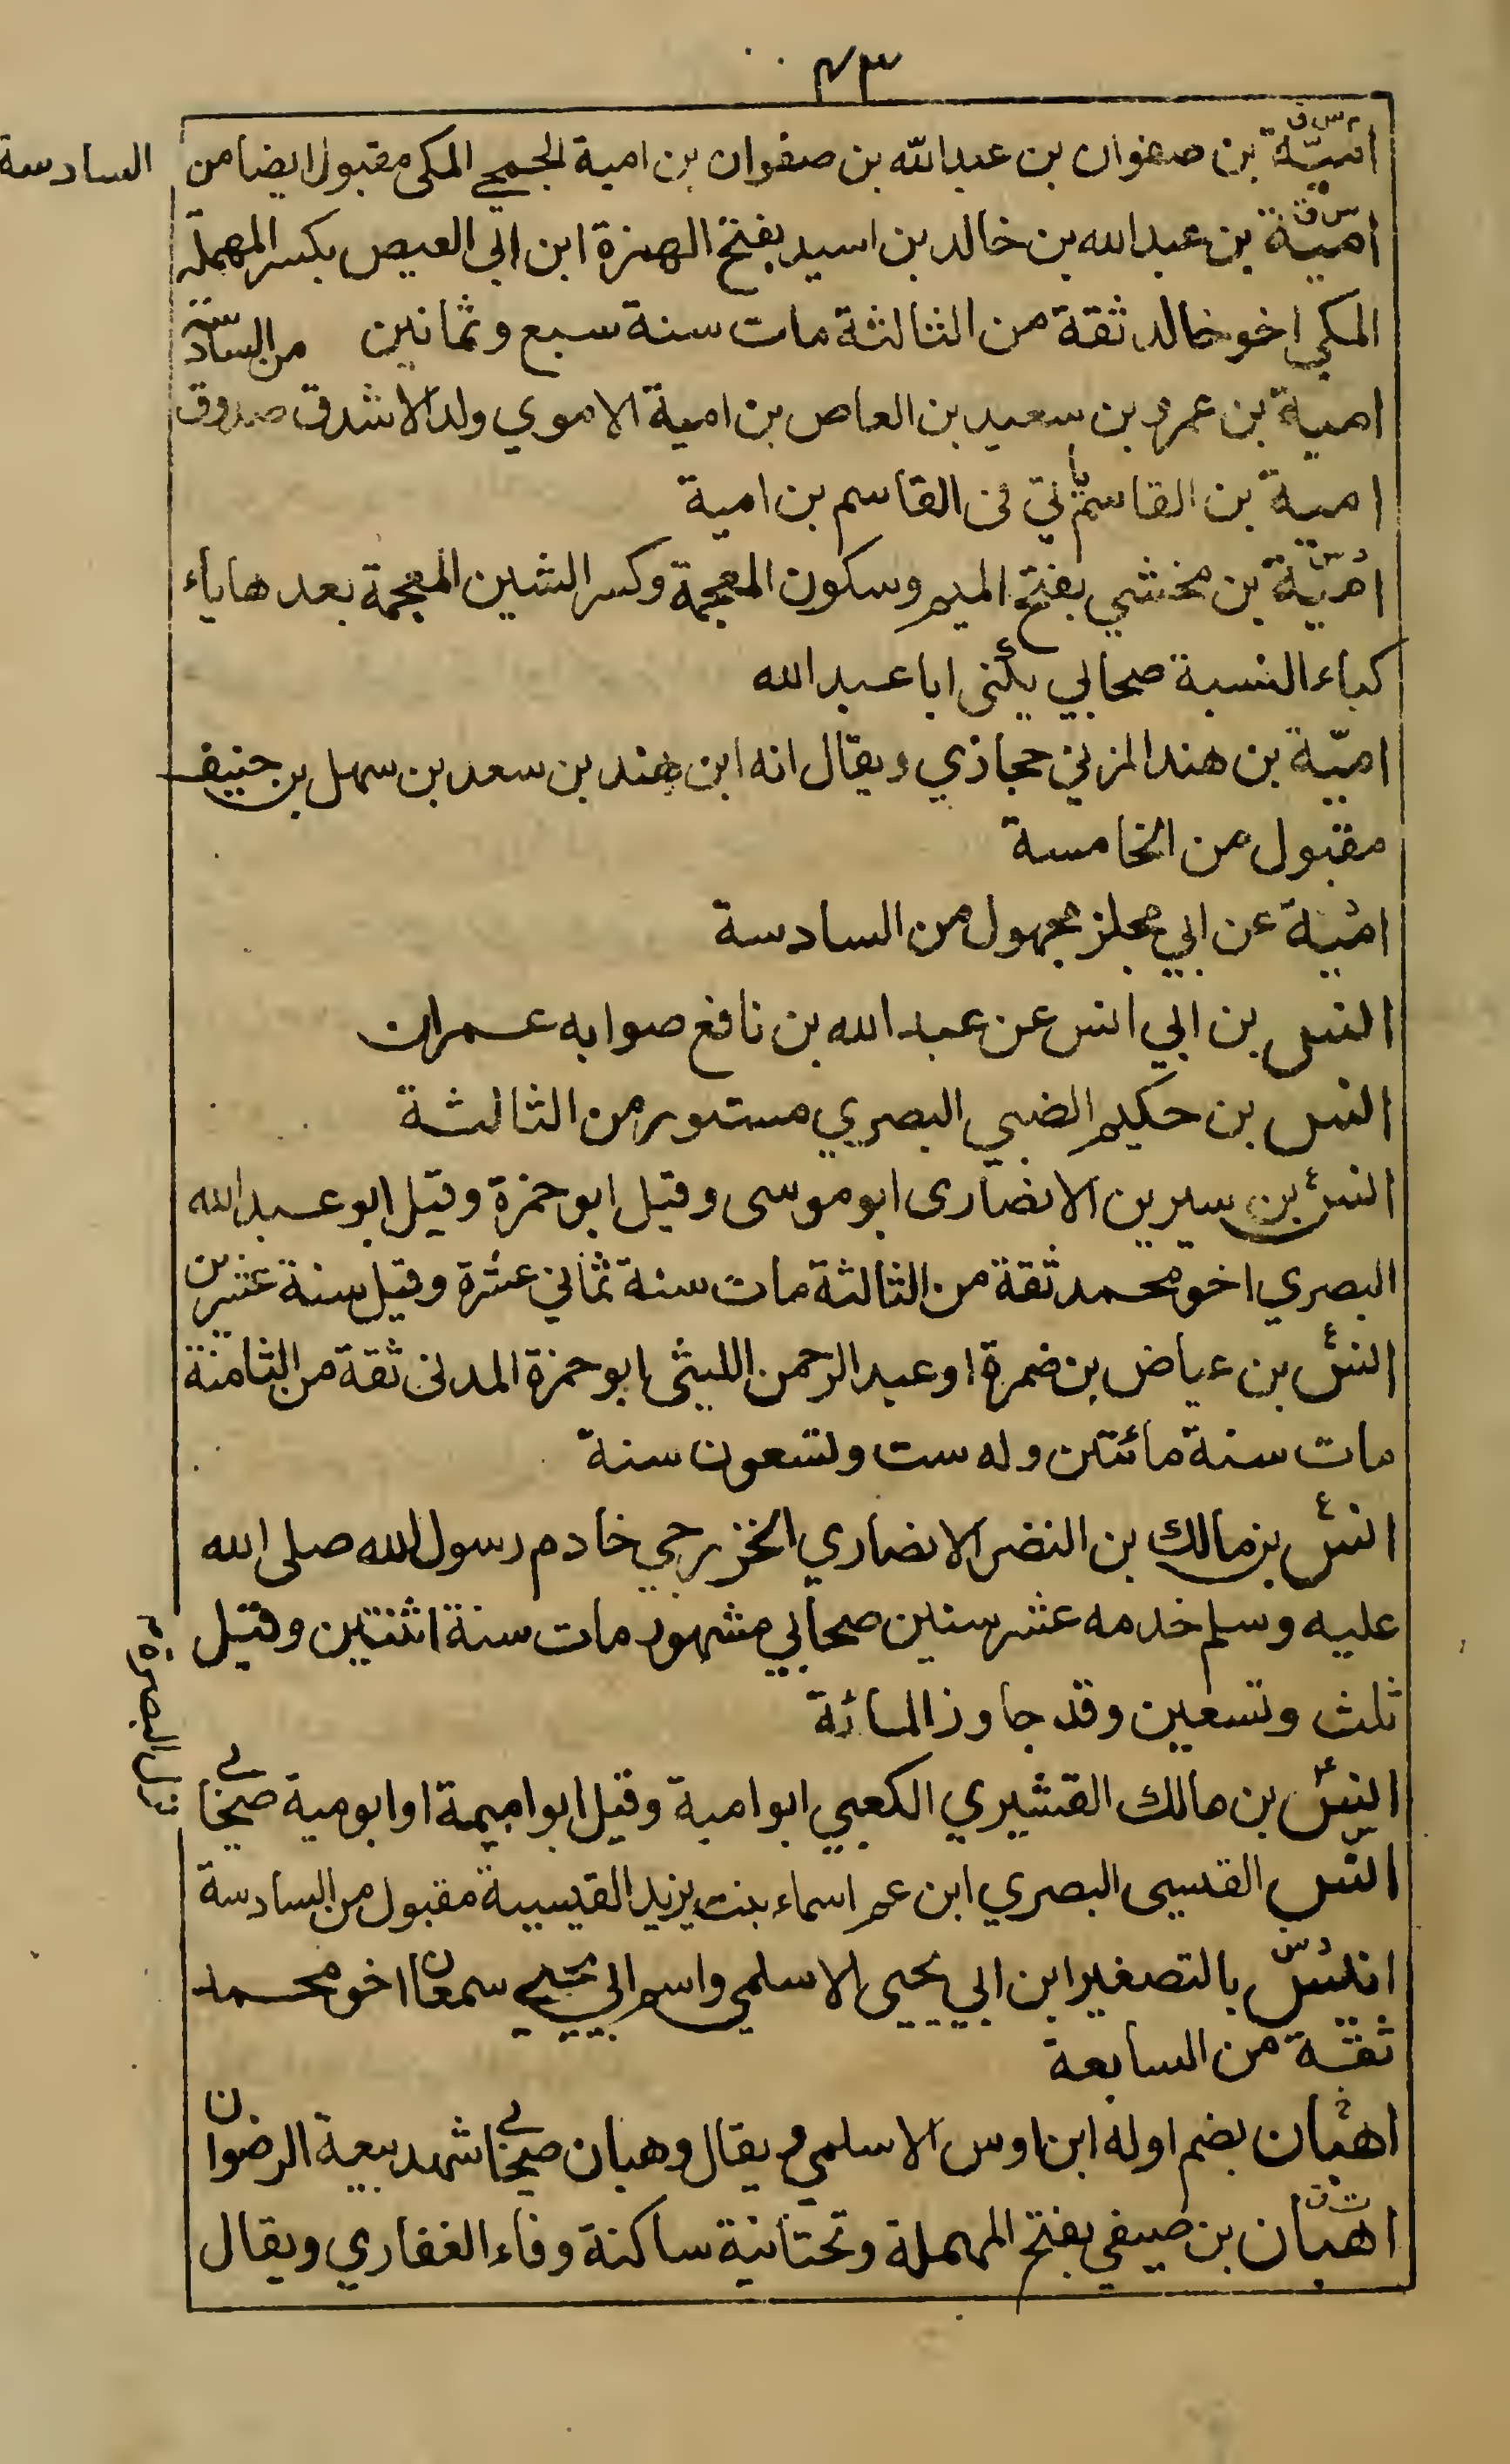 ٤٣
م س ق
امية بن صفوان بن عبدالله بن صفوان بن امية الجمحي المكى مقبول ايضا من السادسة
س ق
امية بن عبدالله بن خالد بن اسيد بفتح الهمزة ابن ابي العيص بكسر المهملة
المكي اخو خالد ثقة من الثالثة مات سنة سبع وثمانين من السادسة
امية بن عمرو بن سعيد بن العاص بن امية الاموي ولد الاشدق صدوق
امية بن القاسم ياتي في القاسم بن امية
د س
امية بن مخشي بفتح الميم وسكون المعجمة وكسر الشين المعجمة بعدها ياء
كياء النسبة صحابي يكنى ابا عبدالله
امية بن هند المزني حجازي ويقال انه ابن هند بن سعد بن سهل بن حنيف
مقبول من الخامسة
امية عن ابي مجلز مجهول من السادسة
انس بن ابي انس عن عبدالله بن نافع صوابه عمران
انس بن حكيم الضبي البصري مستور من الثالثة
انس بن سيرين الانصارى ابو موسى وقيل ابو حمزة وقيل ابو عبدالله
البصري اخو محمد ثقة من الثالثة مات سنة ثماني عشرة وقيل سنة عشرين
انس بن عياض بن ضمرة او عبدالرحمن الليثى ابو حمزة المدنى ثقة من الثامنة
مات سنة مائتين وله ست وتسعون سنة
انس بن مالك بن النضر الانصاري الخزرجي خادم رسول الله صلى الله
عليه وسلم خدمه عشر سنين صحابي مشهور مات سنة اثنتين وقيل
ثلث وتسعين وقد جاوز المائة
انس بن مالك القشيري الكعبي ابو امية وقيل ابو اميمة او ابو مية صحابي
نزل البصرة
انس القيسى البصري ابن عم اسماء بنت يزيد القيسية مقبول من السادسة
د س
انيس بالتصغير ابن ابي يحيى الاسلمي واسم ابي يحيى سمعان اخو محمد
ثقة من السابعة
اهبان بضم اوله ابن اوس الاسلمي ويقال وهبان صحابي شهد بيعة الرضوان
ت ق
اهبان بن صيفي بفتح المهملة وتحتانية ساكنة وفاء الغفاري ويقال